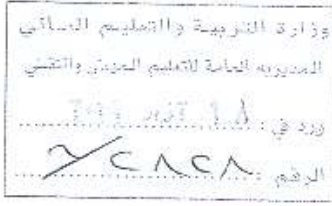 وزارة التربية والتعليم العالي
المديرية العامة للتعليم المهني والتقني
ورد في :
الرقم : ٢٨٢٨/